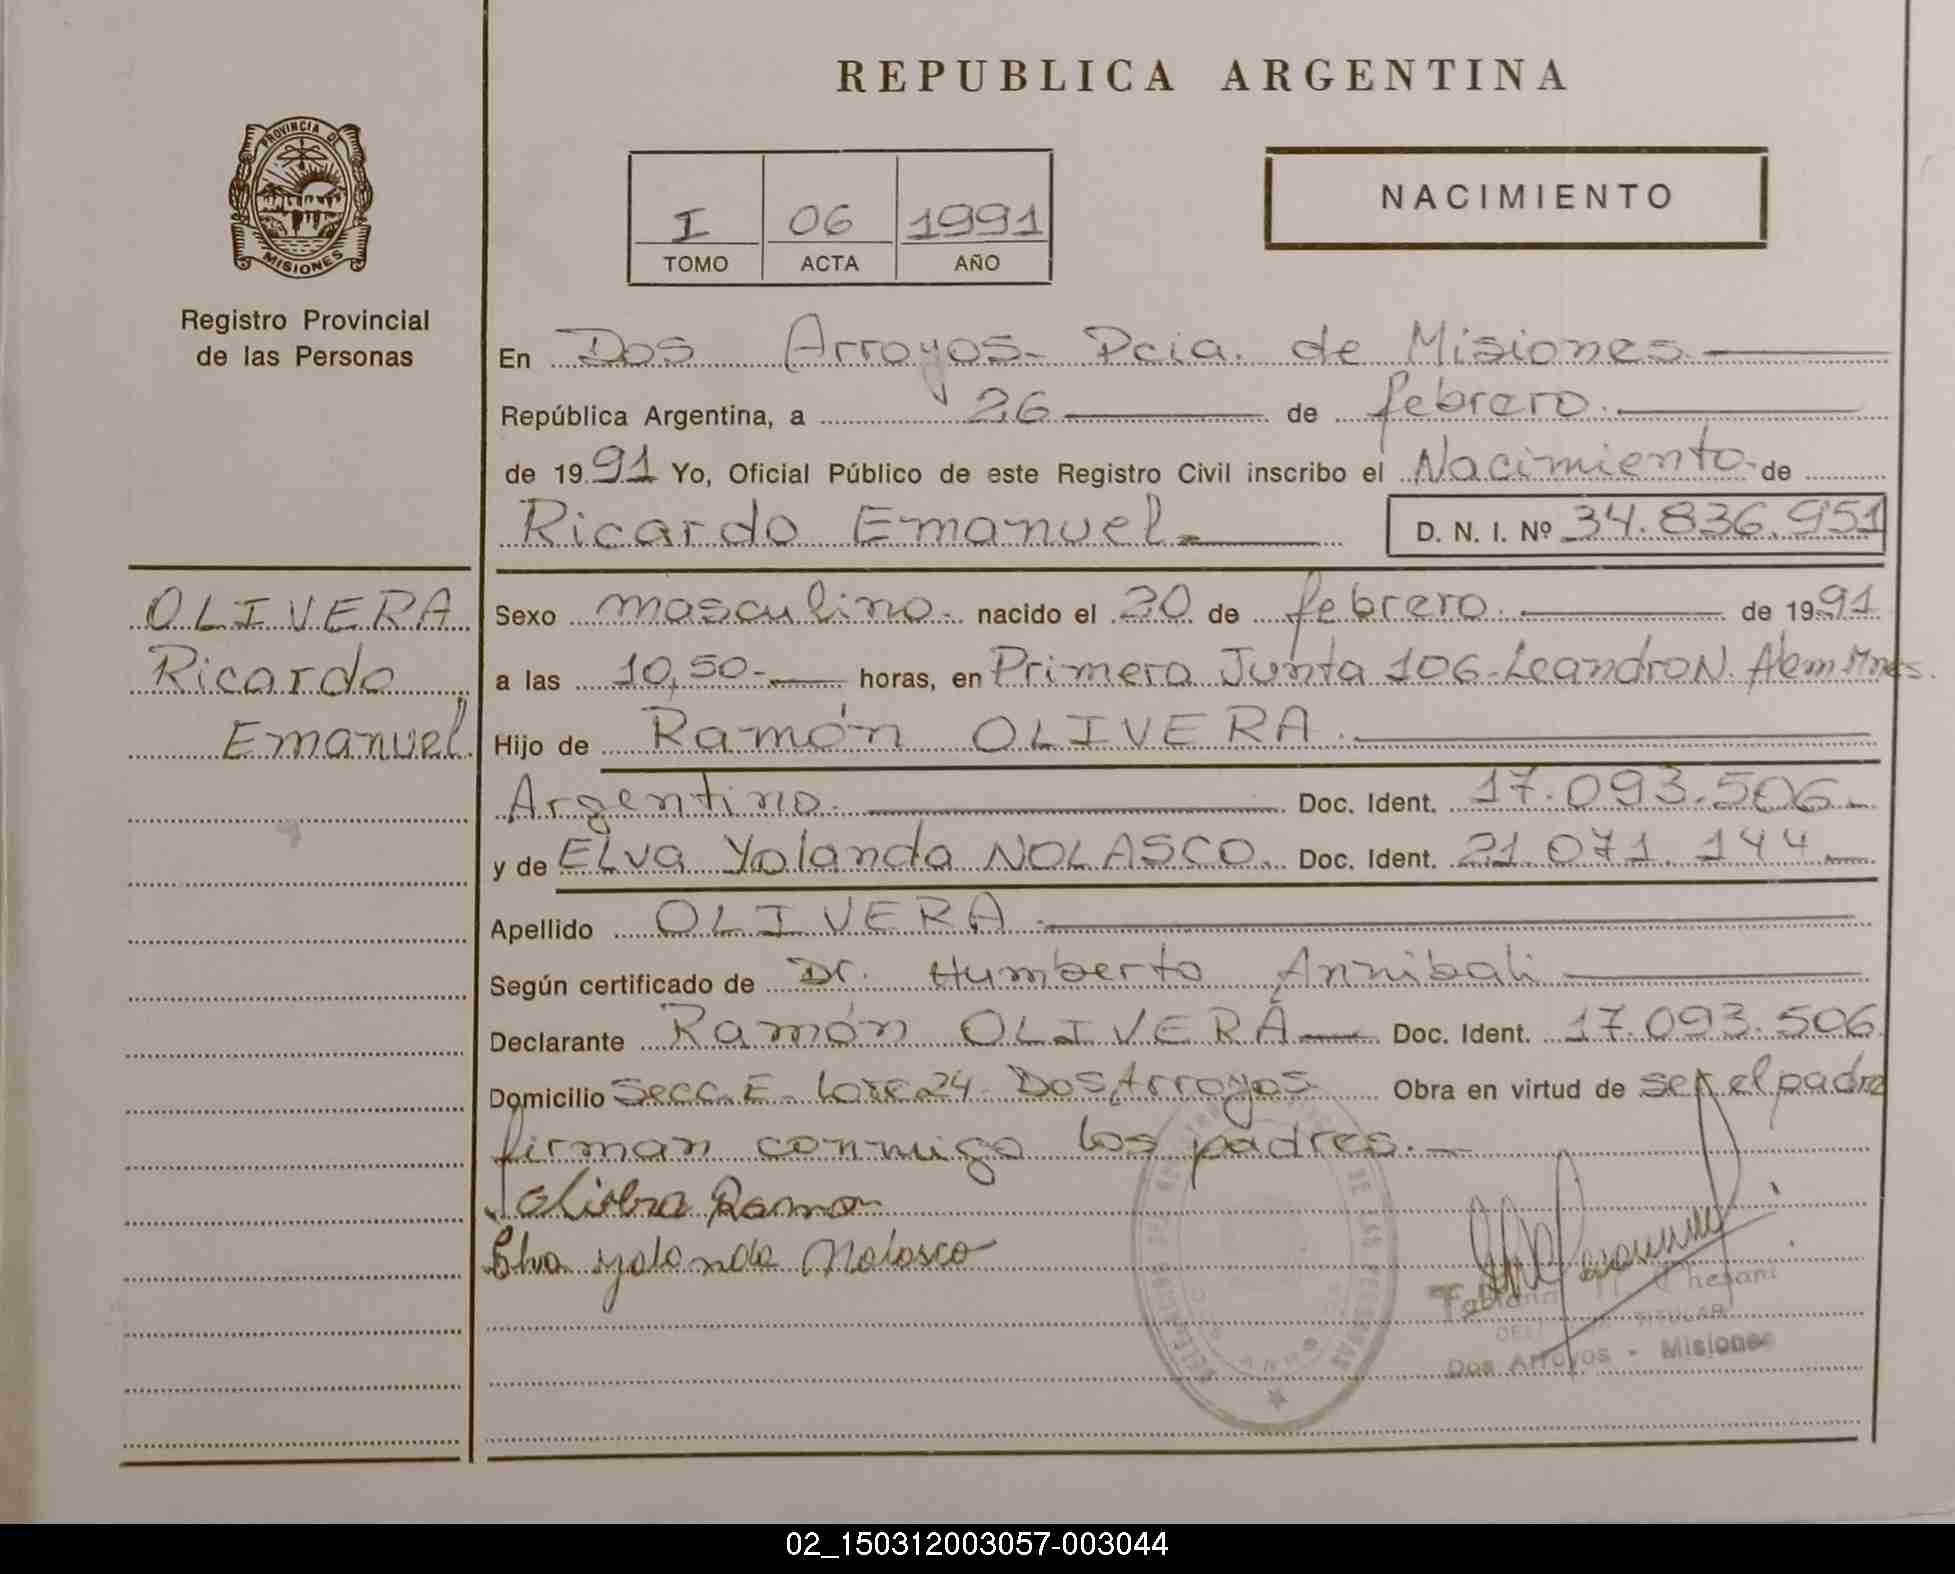 REPUBLICA ARGENTINA
PROVINCIA DE
MISIONES
Registro Provincial
de las Personas
I 06 1991
TOMO ACTA AÑO
NACIMIENTO
En Dos Arroyos- Pcia. de Misiones
República Argentina, a 26 de febrero.
de 1991 Yo, Oficial Público de este Registro Civil inscribo el Nacimiento de
Ricardo Emanuel D. N. I. Nº 34.836.951
OLIVERA
Ricardo
Emanuel
Sexo masculino.- nacido el 20 de febrero. de 1991
a las 10,50.- horas, en Primera Junta 106-Leandro N. Alem Mnes.
Hijo de Ramón OLIVERA.
Argentino. Doc. Ident. 17.093.506.-
y de ELva Yolanda NOLASCO. Doc. Ident. 21.071.144
Apellido OLIVERA.
Según certificado de Dr. Humberto Annibali
Declarante Ramón OLIVERA Doc. Ident. 17.093.506
Domicilio Secc. E- Lote 24- Dos Arroyos. Obra en virtud de ser el padre
firman conmigo los padres.-
Olivera Ramon
Elva yolanda Nolasco
DE LAS PERSONAS
TITULAR
Dos Arroyos - Misiones
02_150312003057-003044